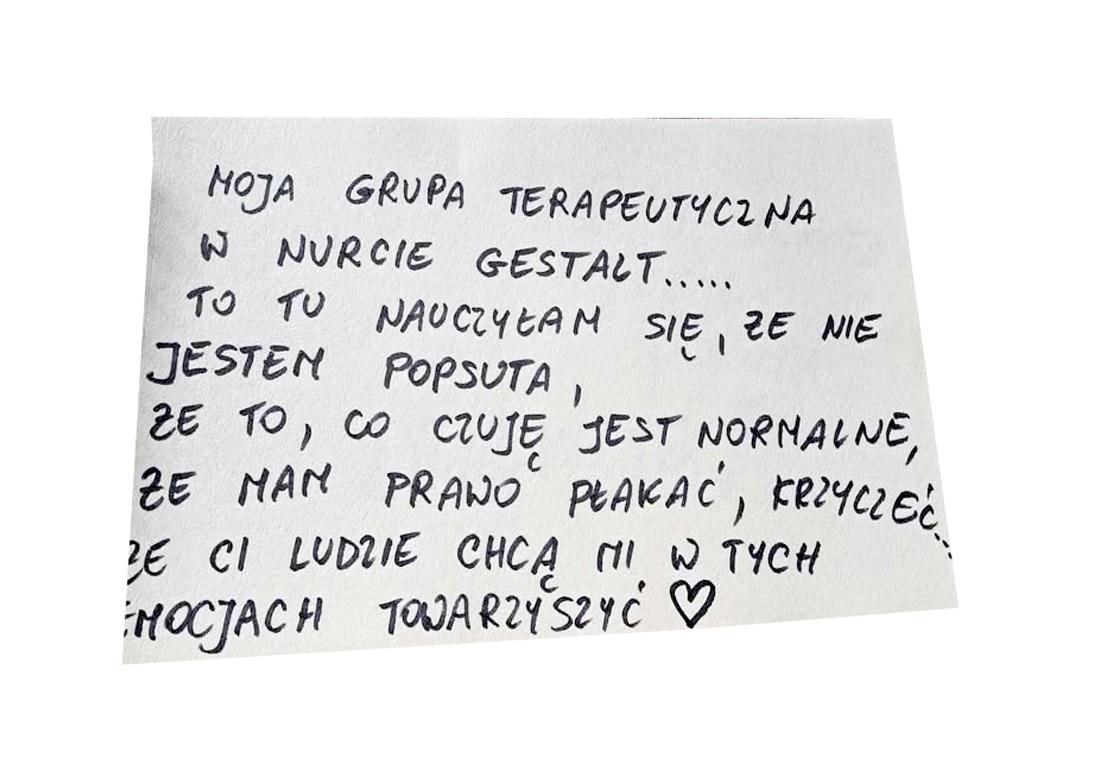 MOJA GRUPA TERAPEUTYCZNA
W NURCIE GESTALT.....
TO TU NAUCZYŁAM SIĘ, ŻE NIE
JESTEM POPSUTA,
ŻE TO, CO CZUJĘ JEST NORMALNE,
ŻE MAM PRAWO PŁAKAĆ, KRZYCZEĆ...
ŻE CI LUDZIE CHCĄ MI W TYCH
EMOCJACH TOWARZYSZYĆ ♡